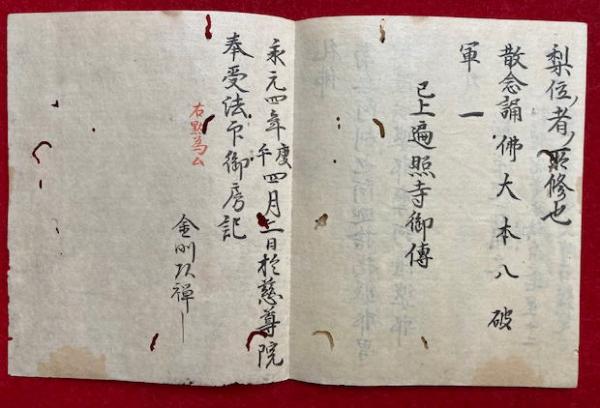 梨位者所修也
散念誦 佛 大 本 八 破
軍 一
已上遍照寺御傳
承元四年庚午四月二日於慈尊院
奉受法印御房記
右點
金剛禅